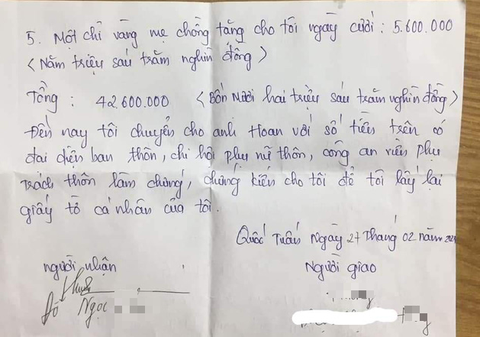 5. Một chỉ vàng mẹ chồng tặng cho tôi ngày cưới: 5.600.000
<Năm triệu sáu trăm nghìn đồng>
Tổng: 42600.000 <Bốn mươi hai triệu sáu trăm nghìn đồng>
Đến nay tôi chuyển cho anh Hoan với số tiền trên có
đại diện ban thôn, chi hội phụ nữ thôn, công an viên phụ
trách thôn làm chứng, chứng kiến cho tôi để tôi lấy lại
giấy tờ cá nhân của tôi.
Quốc Tuấn ngày 27 tháng 02 năm
người nhận
Người giao
Ngọc